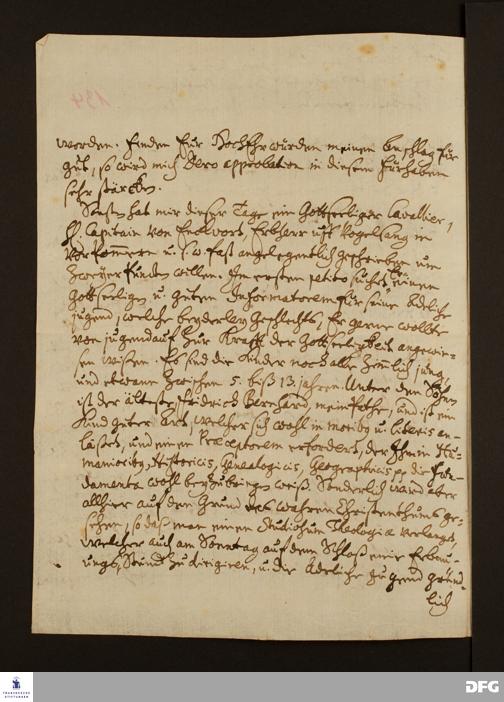 134
worden. Finden Eur HochEhrwürden meinen Anschlag für
gut, so wird mich Dero approbation in diesem Fürhaben
sehr stärcken.
Sonsten hat mir dieser Tage ein Gottseeliger Cavallier,
H. Capitain von Erbherr uff Vogelsang in
Vor Pommern u. s. w. fast angelegentlich geschrieben um
zweyer Sachen willen. Im ersten petito suchet Er einen
Gottseeligen u. gutem Informatorem für seine Adeliche
jugend, welche beyderley Geschlechts, Er gerne wollte
von jugend auf zur Krafft der Gottseeligkeit angewie-
sen wissen. Es sind die Kinder noch alle zimlich jung,
und etwann zwischen 5. biß 13. jahren. Unter den Söhnen
ist der älteste, Fridrich Bernhard, mein Pathe, und ist ein
Kind guter Art, welcher sich wohl in moribus u. literis an-
lasset, und einen Præceptorem erfordert, der Ihm in Hu-
manioribus, Historicis, Genealogicis, Geographicis pp die Fun-
damenta wohl beyzubringen weiß. Sonderlich wird aber
allhier auf den Grund des wahren Christenthums ge-
sehen, so daß man einen Studiosum Theologiæ verlanget,
welcher auch am Sonntag auf dem Schloß eine Erbau-
ungs Stund zu dirigiren, u. die Adeliche jugend gründ-
lich
FRANCKESCHE
STIFTUNGEN
DFG